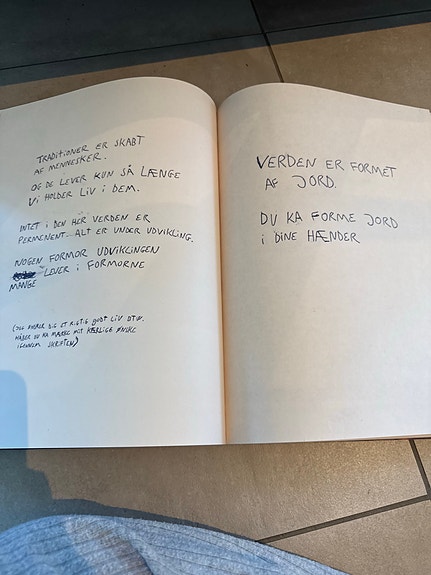 TRADITIONER ER SKABT
AF MENNESKER.
OG DE LEVER KUN SÅ LÆNGE
VI HOLDER LIV I DEM.
INTET I DEN HER VERDEN ER
PERMENENT. ALT ER UNDER UDVIKLING.
NOGEN FORMOR UDVIKLINGEN
LEVER I FORMORNE
MANGE
(JEG ØNSKER DIG ET RIGTIG GODT LIV
HÅBER DU KA MÆRKE MIT KÆRLIGE ØNSKE
IGENNEM SKRIFTEN)
VERDEN ER FORMET
AF JORD.
DU KA FORME JORD
I DINE HÆNDER